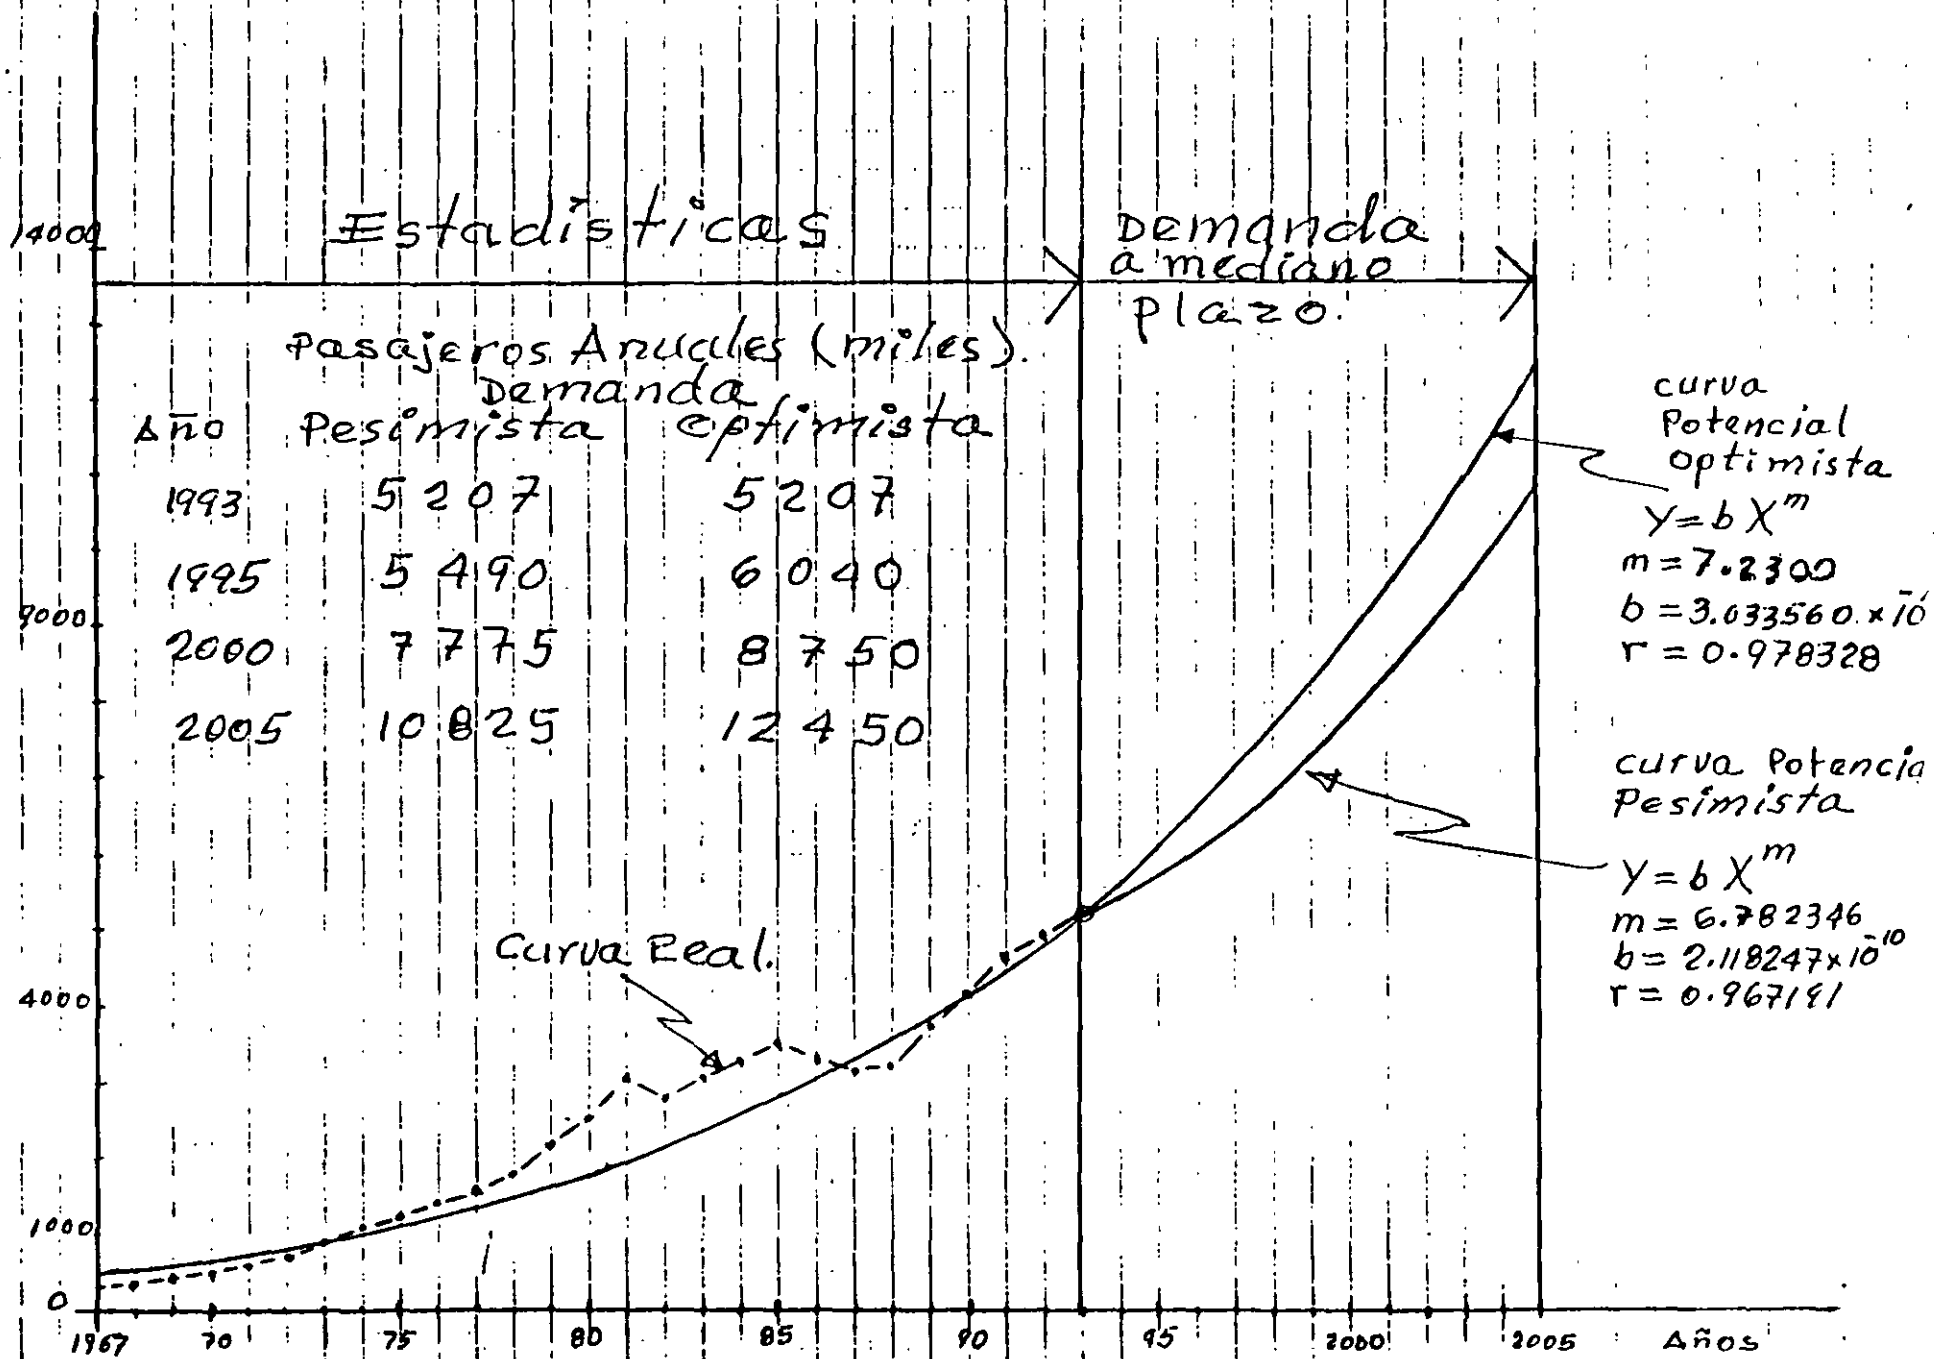 14000
Estadísticas
Demanda
a mediano
plazo.
Pasajeros Anuales (miles).
Demanda
Año Pesimista Optimista
1993 5207 5207
1995 5490 6040
2000 7775 8750
2005 10825 12450
curva
Potencial
Optimista
Y=bX^m
m=7.2300
b=3.033560.x10
r=0.978328
curva Potencia
Pesimista
Y=bX^m
m=6.782346
b=2.118247x10^-10
r=0.967191
Curva Real.
9000
4000
1000
0
1967 70 75 80 85 90 95 2000 2005 Años